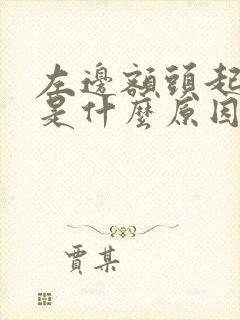 左邊額頭起
是什麼原因
賈某